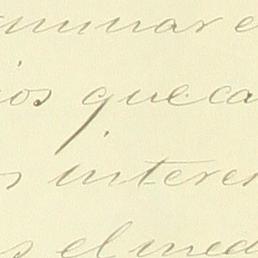 minar e
ios que ca
s interes
s el med